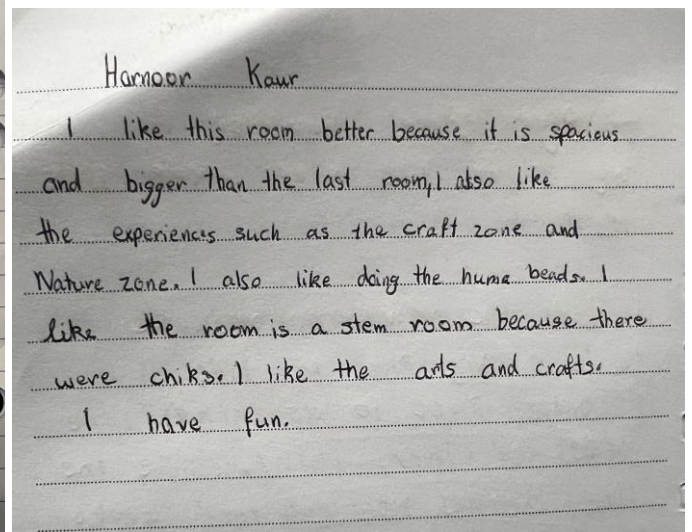 Harnoor Kaur
I like this room better because it is spacious
and bigger than the last room, I also like
the experiences such as the craft zone and
Nature zone. I also like doing the huma beads. I
like the room is a stem room because there
were chiks. I like the arts and crafts.
I have fun.